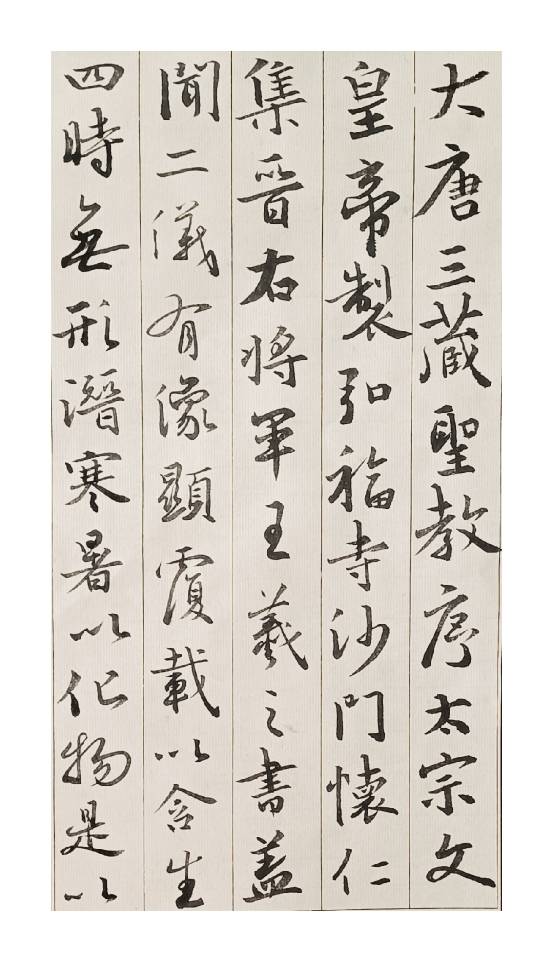 大唐三藏聖教序太宗文
皇帝製弘福寺沙門懷仁
集晉右將軍王羲之書蓋
聞二儀有像顯覆載以含生
四時無形潛寒暑以化物是以